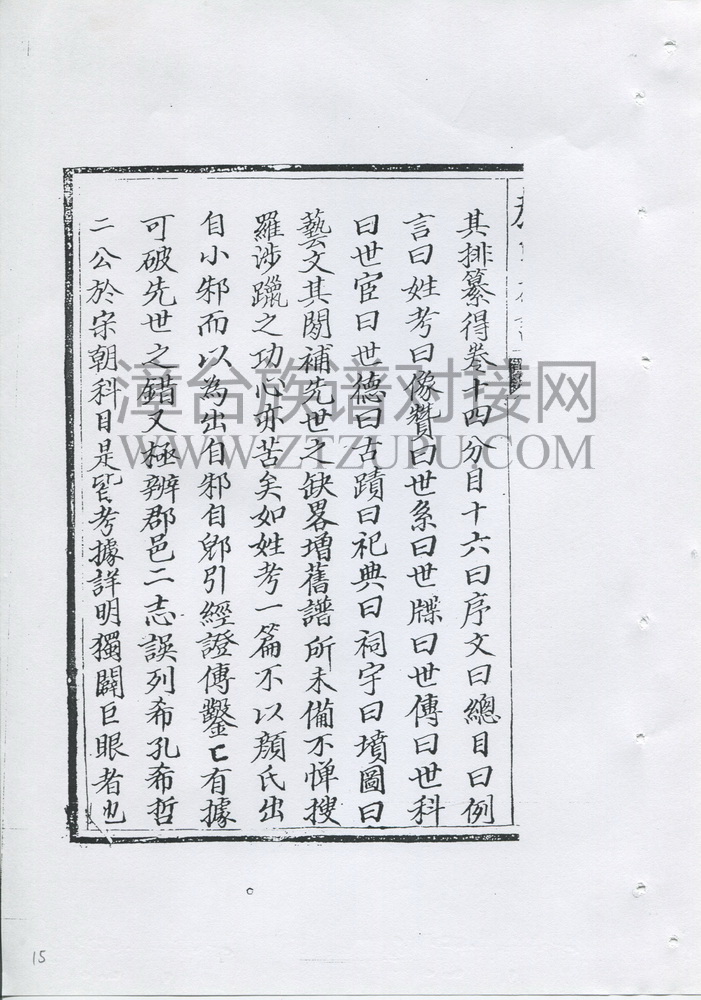 其排纂得卷十四分目十六曰序文曰總目曰例
言曰姓考曰像贊曰世系曰世牒曰世傳曰世科
曰世宦曰世德曰古蹟曰祀典曰祠宇曰墳圖曰
藝文其間補先世之缺畧增舊譜所未備不憚搜
羅涉躐之功心亦苦矣如姓考一篇不以顏氏出
自小邾而以為出自邾自郳引經證傳鑿〻有據
可破先世之錯又極辨郡邑二志誤列希孔希哲
二公於宋朝科目是皆考據詳明獨闢巨眼者也
漳台族谱对接网
WWW.ZTZUPU.COM
15